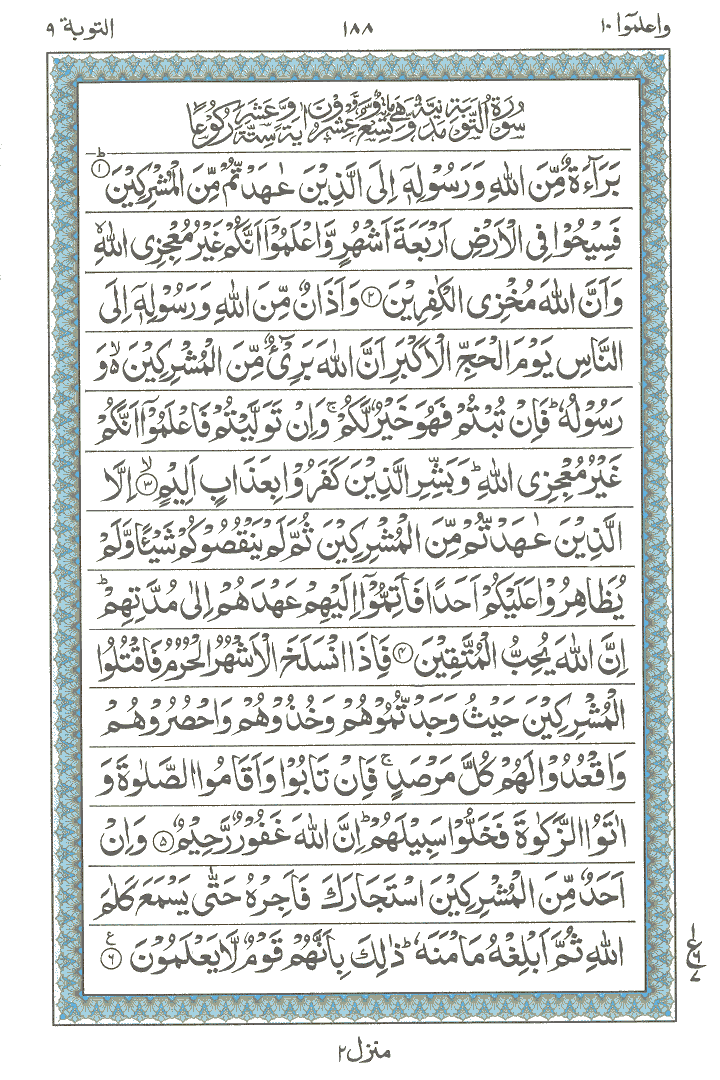 التوبة ٩
١٨٨
واعلموا ١٠
سُوۡرَةُ التَّوۡبَةِ مَدَنِيَّةٌ وَّهِىَ مِائَةٌ وَّتِسۡعٌ وَّعِشۡرُوۡنَ اٰيَةً وَّسِتَّةَ عَشَرَ رُكُوۡعًا
بَرَآءَةٌ مِّنَ اللّٰهِ وَرَسُوۡلِهٖۤ اِلَى الَّذِيۡنَ عٰهَدْتُّمۡ مِّنَ الۡمُشۡرِكِيۡنَ ؕ‏ ﴿۱﴾
فَسِيۡحُوۡا فِى الۡاَرۡضِ اَرۡبَعَةَ اَشۡهُرٍ وَّاعۡلَمُوۡۤا اَنَّكُمۡ غَيۡرُ مُعۡجِزِى اللّٰهِ‌ۙ
وَاَنَّ اللّٰهَ مُخۡزِى الۡكٰفِرِيۡنَ‏ ﴿۲﴾ وَاَذَانٌ مِّنَ اللّٰهِ وَرَسُوۡلِهٖۤ اِلَى
النَّاسِ يَوۡمَ الۡحَجِّ الۡاَكۡبَرِ اَنَّ اللّٰهَ بَرِىۡۤءٌ مِّنَ الۡمُشۡرِكِيۡنَ ۙ وَ
رَسُوۡلُهٗ‌ ؕ فَاِنۡ تُبۡتُمۡ فَهُوَ خَيۡرٌ لَّكُمۡ‌ ۚ وَاِنۡ تَوَلَّيۡتُمۡ فَاعۡلَمُوۡۤا اَنَّكُمۡ
غَيۡرُ مُعۡجِزِى اللّٰهِ‌ ؕ وَبَشِّرِ الَّذِيۡنَ كَفَرُوۡا بِعَذَابٍ اَلِيۡمٍۙ‏ ﴿۳﴾ اِلَّا
الَّذِيۡنَ عٰهَدتُّمۡ مِّنَ الۡمُشۡرِكِيۡنَ ثُمَّ لَمۡ يَنۡقُصُوۡكُمۡ شَيۡـًٔـا وَّلَمۡ
يُظَاهِرُوۡا عَلَيۡكُمۡ اَحَدًا فَاَتِمُّوۡۤا اِلَيۡهِمۡ عَهۡدَهُمۡ اِلٰى مُدَّتِهِمۡ‌ؕ
اِنَّ اللّٰهَ يُحِبُّ الۡمُتَّقِيۡنَ‏ ﴿۴﴾ فَاِذَا انْسَلَخَ الۡاَشۡهُرُ الۡحُرُمُ فَاقۡتُلُوا
الۡمُشۡرِكِيۡنَ حَيۡثُ وَجَدْتُّمُوۡهُمۡ وَخُذُوۡهُمۡ وَاحۡصُرُوۡهُمۡ
وَاقۡعُدُوۡا لَهُمۡ كُلَّ مَرۡصَدٍ‌ ۚ فَاِنۡ تَابُوۡا وَاَقَامُوا الصَّلٰوةَ وَ
اٰتَوُا الزَّكٰوةَ فَخَلُّوۡا سَبِيۡلَهُمۡ‌ ؕ اِنَّ اللّٰهَ غَفُوۡرٌ رَّحِيۡمٌ‏ ﴿۵﴾ وَاِنۡ
اَحَدٌ مِّنَ الۡمُشۡرِكِيۡنَ اسۡتَجَارَكَ فَاَجِرۡهُ حَتّٰى يَسۡمَعَ كَلٰمَ
اللّٰهِ ثُمَّ اَبۡلِغۡهُ مَاۡمَنَهٗ‌ ؕ ذٰ لِكَ بِاَنَّهُمۡ قَوۡمٌ لَّا يَعۡلَمُوۡنَ‏ ﴿۶﴾ ع
١
ع
٦
٧
منزل ٢